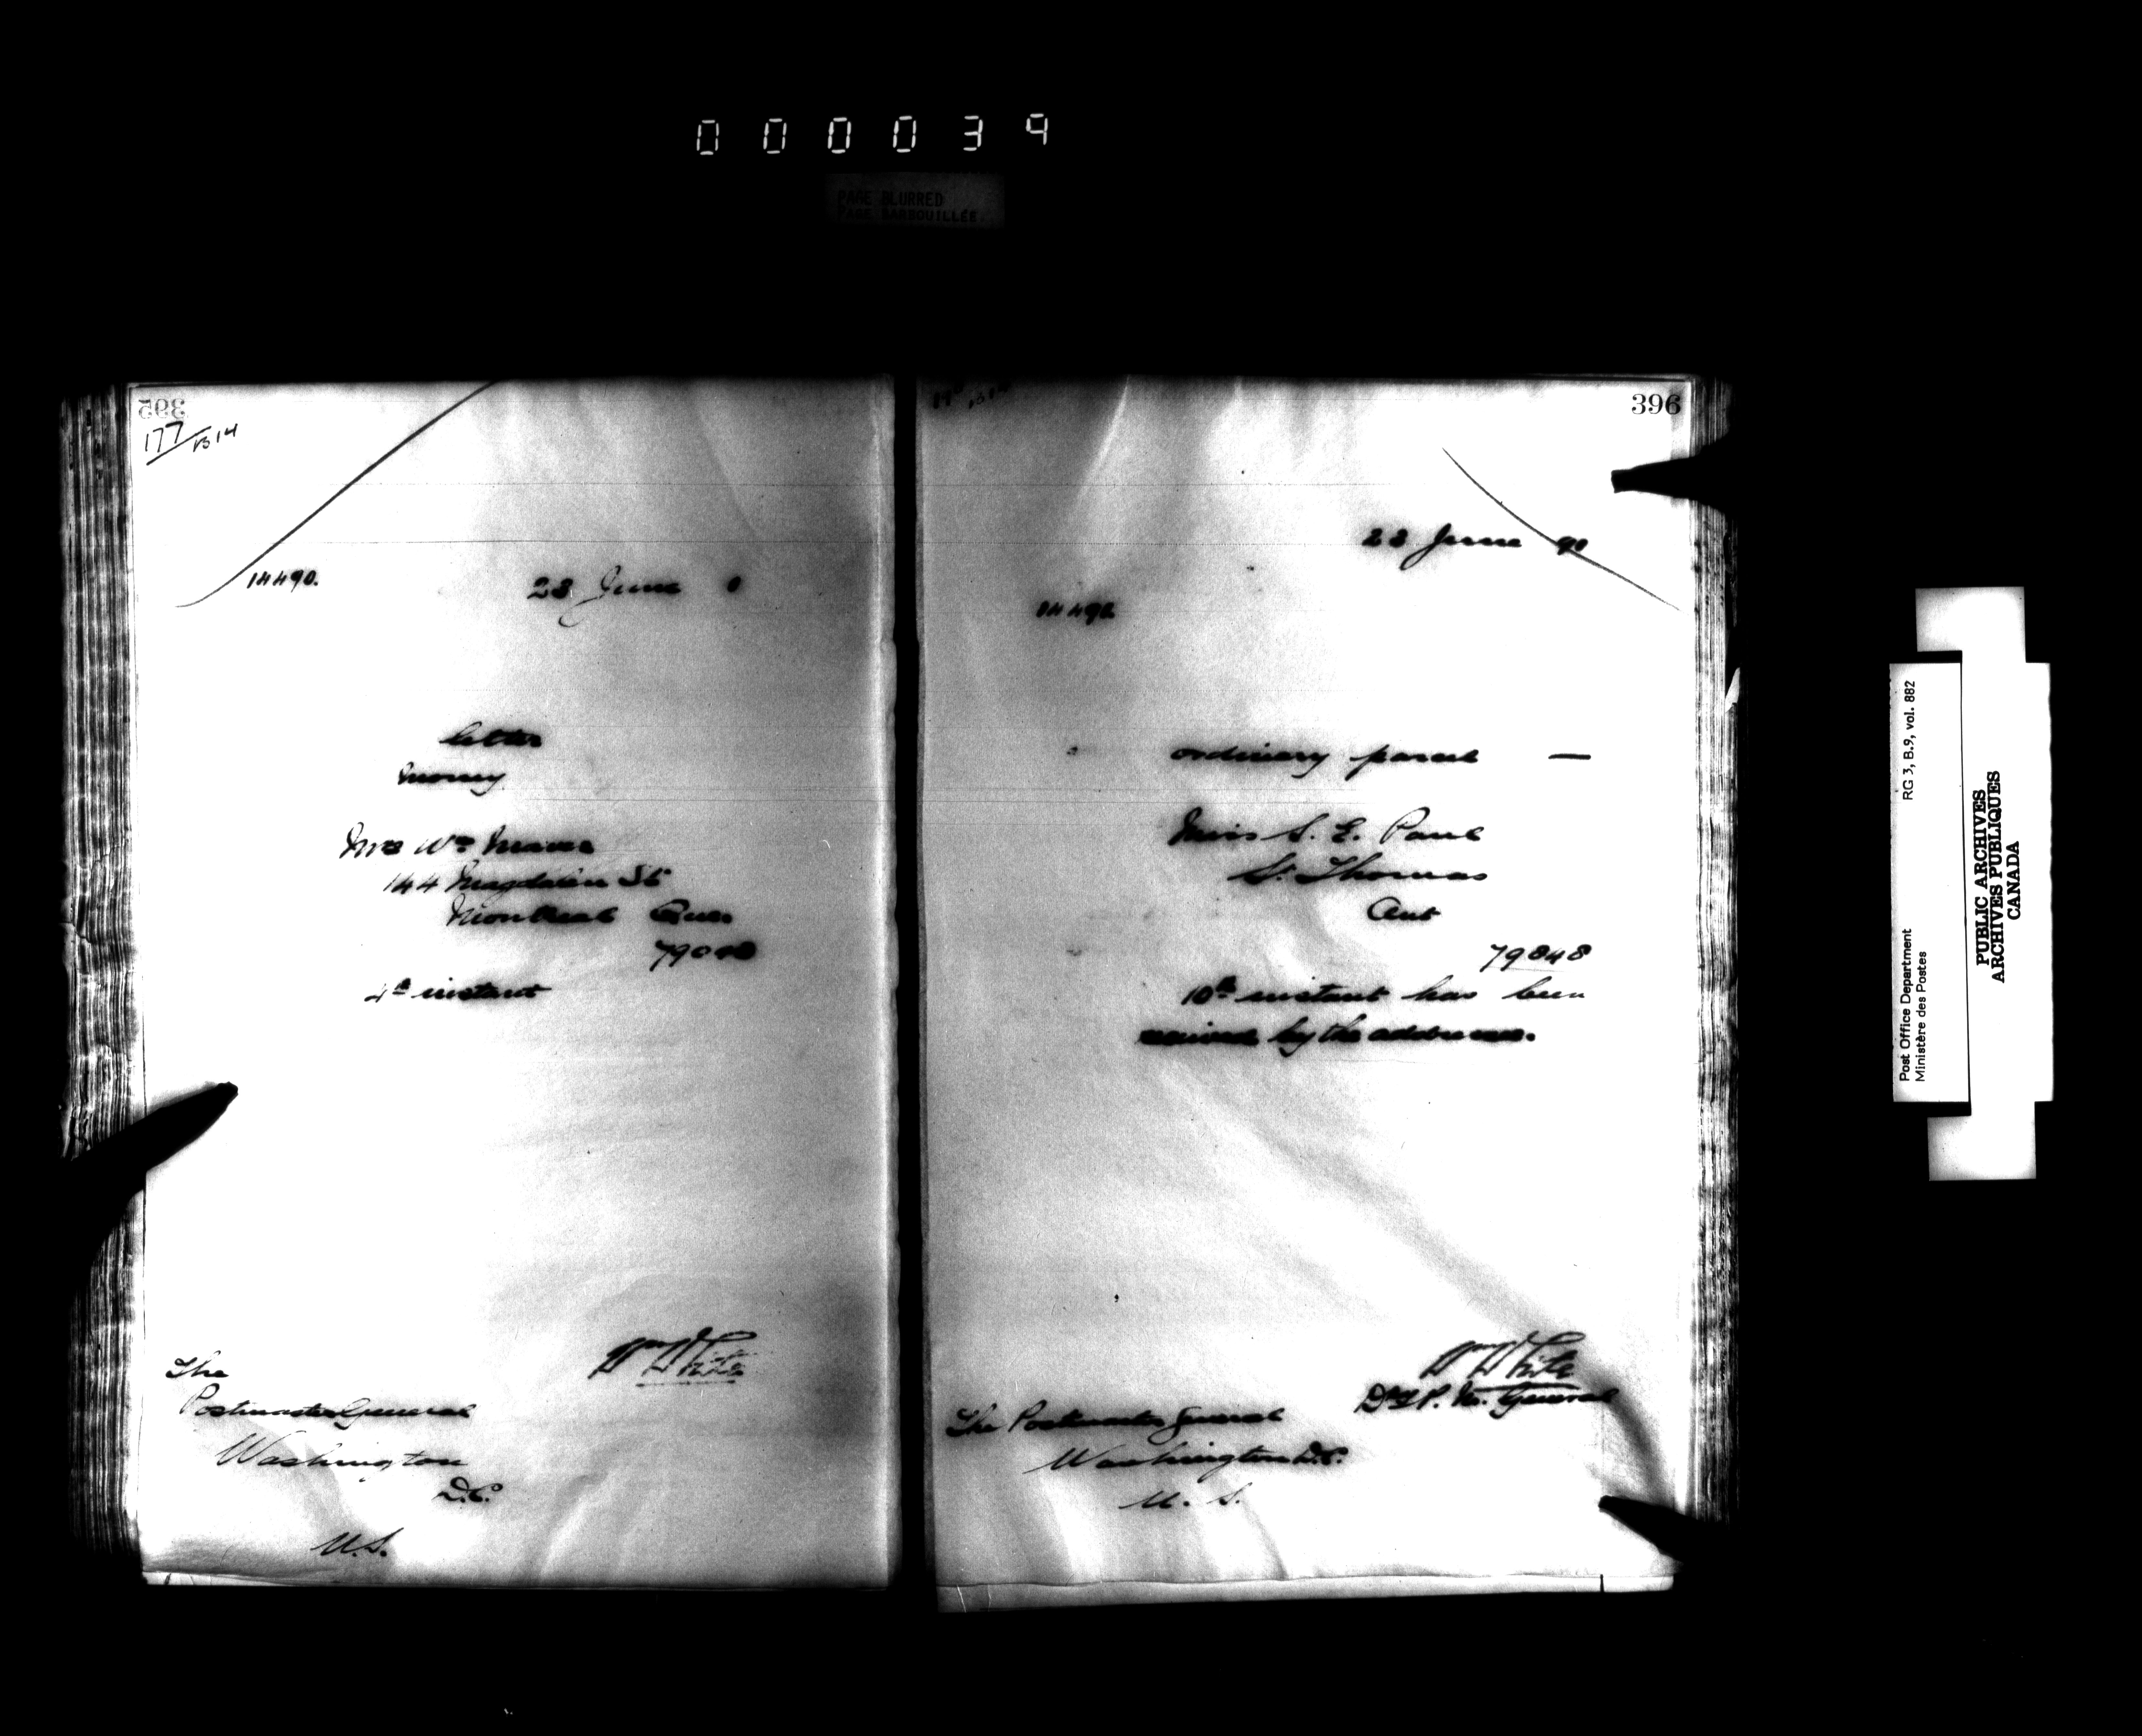 000039
PAGE BLURRED
PAGE BARBOUILLÉE
395
177/B14
14490.
23 June 0
letter
money
Mrs Wm
144 Magdalen St
Montreal Que
4th instant
Wm White
The
Postmaster General
Washington
D.C.
U.S.
396
23 June 90
14490
ordinary parcel —
Miss S. E. Paul
St. Thomas
Ont
79848
10th instant has been
received by the addressee.
Wm White
Dy P. M. General
The Postmaster General
Washington D.C.
U. S.
Post Office Department
Ministère des Postes
RG 3, B.9, vol. 882
PUBLIC ARCHIVES
ARCHIVES PUBLIQUES
CANADA